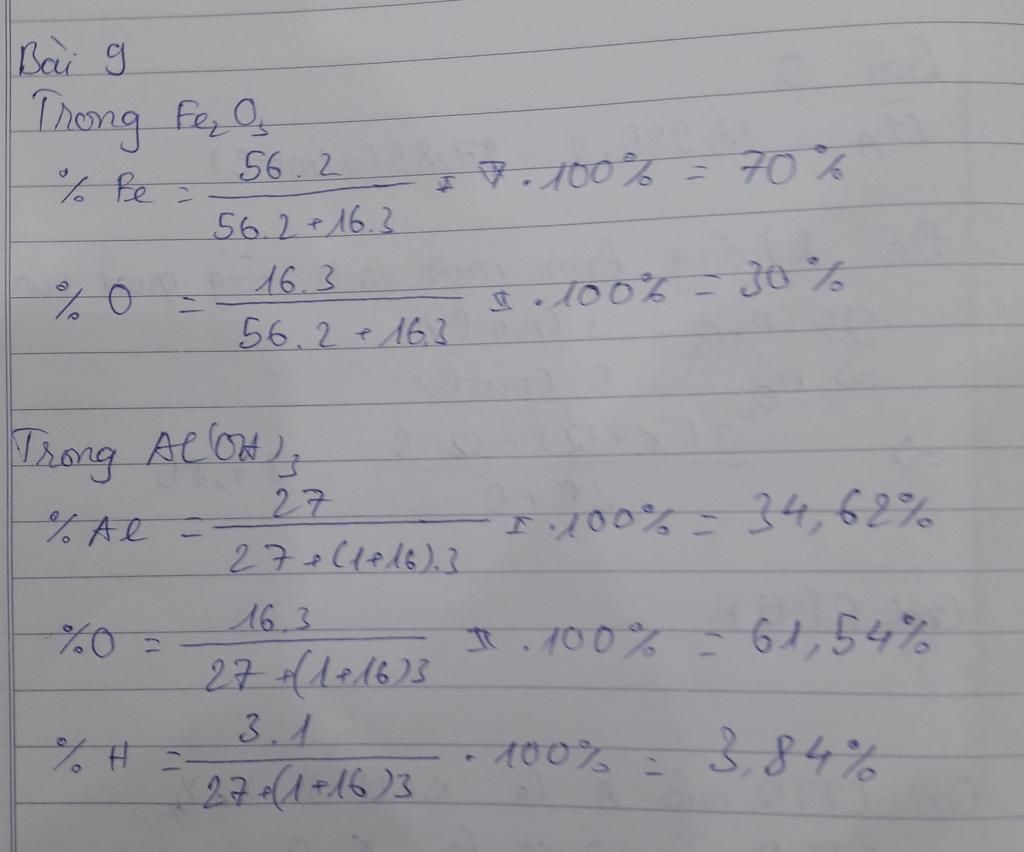 Bài 9
Trong Fe₂O₃
% Fe = 56.2 / 56.2+16.3 . 100% = 70%
% O = 16.3 / 56.2+16.3 . 100% = 30%
Trong Al(OH)₃
% Al = 27 / 27+(1+16).3 . 100% = 34,62%
%O = 16.3 / 27+(1+16)3 . 100% = 61,54%
% H = 3.1 / 27+(1+16)3 . 100% = 3,84%